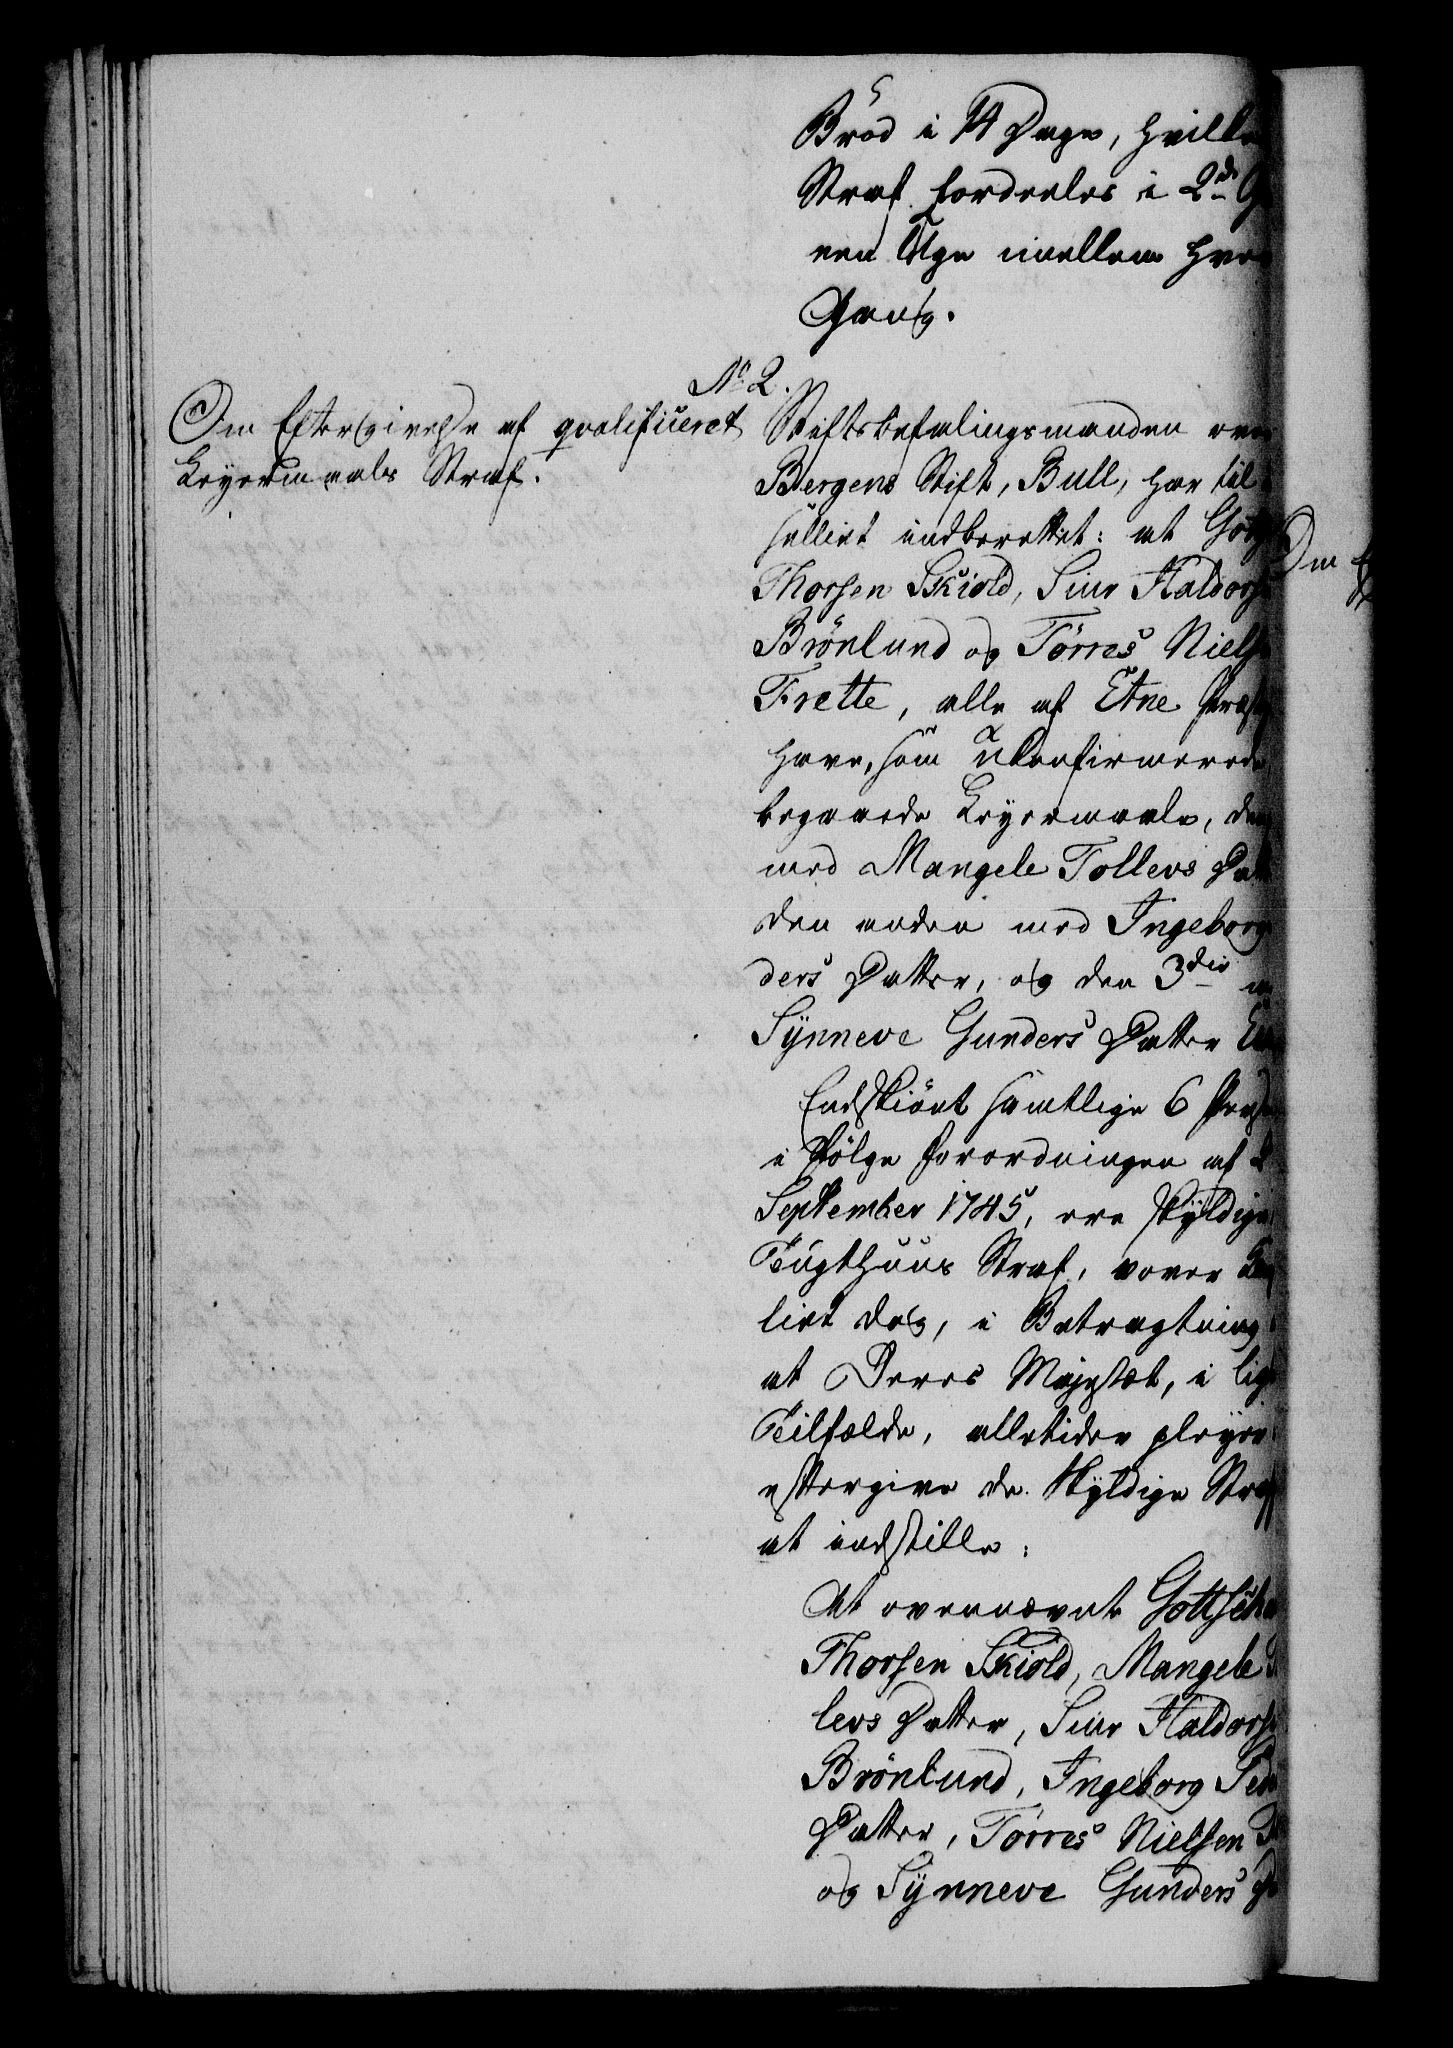 Bród i 14 Dage, hvilken
Straf fordeeles i 2de
een Uge imellem hver
Gang.
No 2.
Om Eftergivelse af qvalificeret
Leyermaals Straf.
Stiftsbefalingsmanden over
Bergens Stift, Bull, har til
Collect indberettet: at
Thorsen Skiold, Siur Haldors
Brönlund og Törres Niels
Frette, alle af Etne Præste
have, som uconfirmerede
begaaede Leyermaale, den
med Mangele Tollevs Dat
den anden med Ingeborg
ders Datter, og den 3die
Synneve Gunders Datter
Endskiönt samtlige 6
i Fölge Forordningen af
September 1745, ere skyldige
Tugthuus Straf, vover
liet dog, i Betragtning
at Deres Majestæt, i lig
Tilfælde, alletider pleyer
eftergive de skyldige Straf
at indstille:
At ovennævnte Gottsch
Thorsen Skiold, Mangele
levs Datter, Siur Haldors
Brönlund, Ingeborg Ped
Datter, Törres Nielsen
og Synneve Gunders
Om